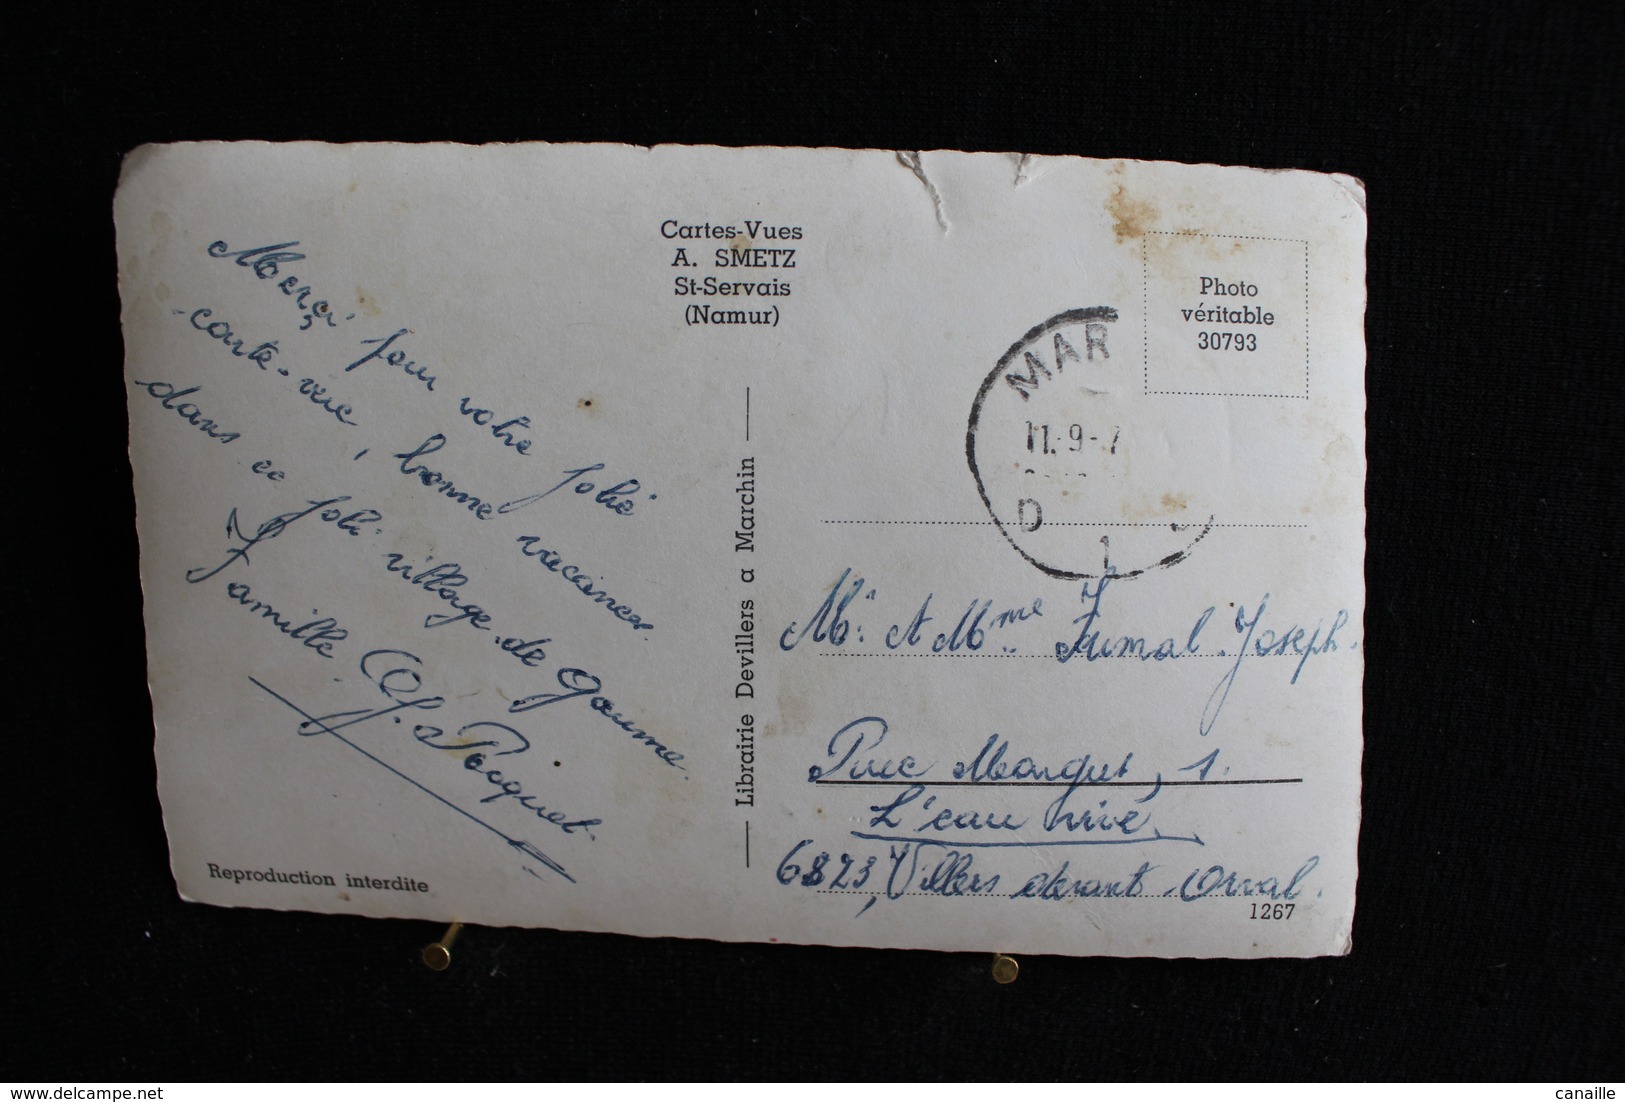 Merçi pour votre jolie
carte-vue, bonne vacances
dans ce joli village de Gaume.
Famille
J. Pocquet.
Reproduction interdite
Cartes-Vues
A. SMETZ
St-Servais
(Namur)
Librairie Devillers a Marchin
Photo
véritable
30793
MAR
11.-9-7
D
1
Mr. et Mme Fumal Joseph.
Rue Margut, 1.
L'eau vive.
6823, Villers devant Orval.
1267
canaille